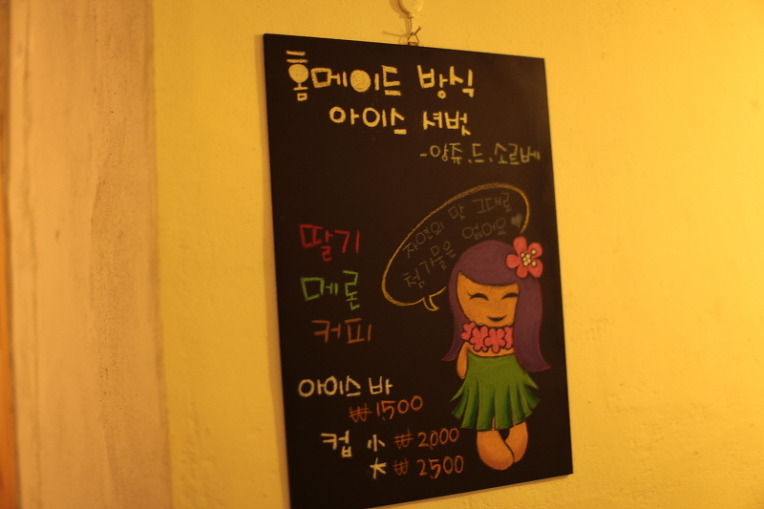 홈메이드 방식
아이스 셔벗
-앙쥬.드.소르베
자연의 맛 그대로
첨가물은 없어요♥
딸기
메론
커피
아이스 바
₩1500
컵 小 ₩2,000
大 ₩2500